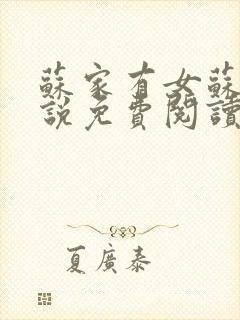 蘇家有女蘇
說免費閱讀
夏廣泰